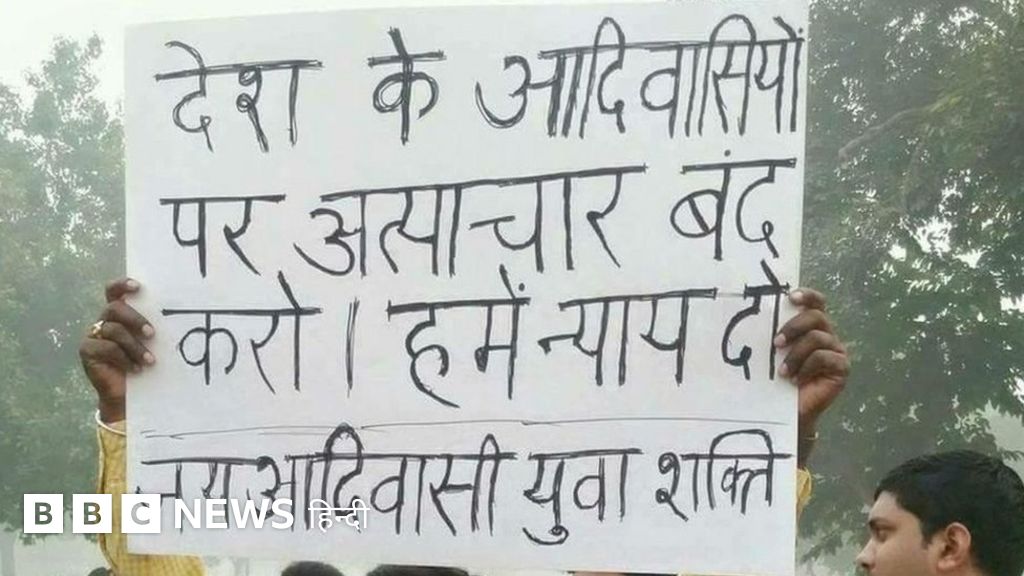 देश के आदिवासियों
पर अत्याचार बंद
करो। हमें न्याय दो
आदिवासी युवा शक्ति
BBC NEWS हिन्दी